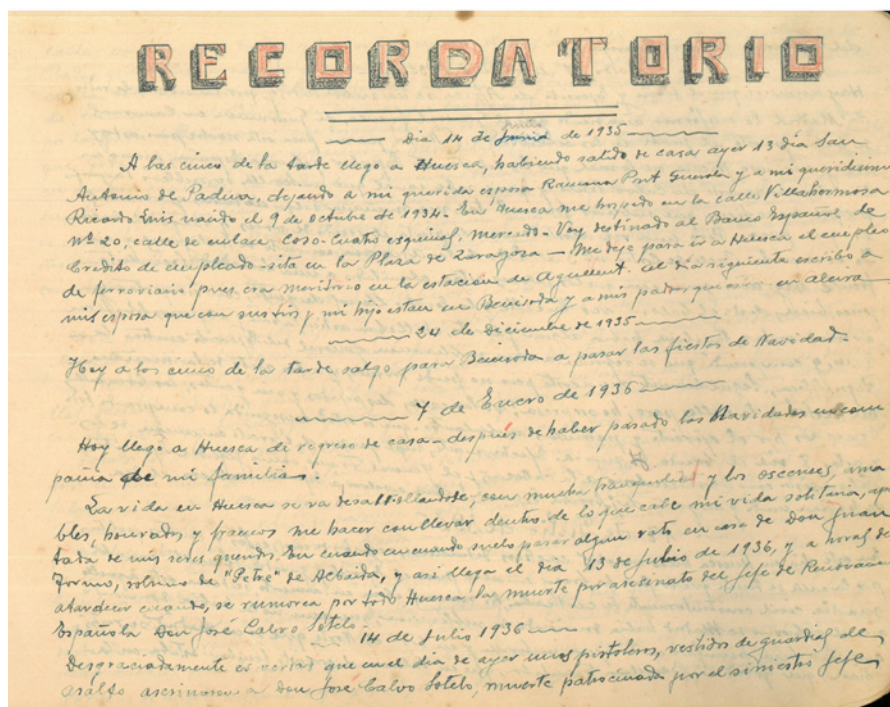 RECORDATORIO
Dia 14 de Junio de 1935
A las cinco de la tarde llego a Huesca, habiendo salido de casa ayer 13 dia San
Antonio de Padua, dejando a mi querida esposa Ramona Pont y a mi queridisimo
Ricardo Luis nacido el 9 de Octubre de 1934. En Huesca me hospedo en la calle Villahermosa
Nº 20, calle de enlace Coso-Cuatro esquinas, mercado. Voy destinado al Banco Español de
Credito de empleado sita en la Plaza de Zaragoza — Me deje para ir a Huesca el empleo
de ferroviario pues era meritorio en la estación de Agullent. Al dia siguiente escribo a
mis esposa que con sus tios y mi hijo estan en Beniroda y a mis padres que en alcira
24 de Diciembre de 1935
Hoy a las cinco de la tarde salgo para Beniroda a pasar las fiestas de Navidad.
7 de Enero de 1936
Hoy llego a Huesca de regreso de casa - después de haber pasado las Navidades en com
pañia de mi familia.
La vida en Huesca se va desarrollandose, con mucha tranquilidad y los oscenses, ama
bles, honrados y francos me hacer conllevar dentro de lo que cabe mi vida solitaria, apar
tada de mis seres queridos. En cuando en cuando suelo pasar algun rato en casa de Don Juan
Tormo, sobrino de "Petre" de Albaida, y asi llega el dia 13 de Julio de 1936, y a horas de
atardecer cuando, se rumorea por todo Huesca la muerte por asesinato del Jefe de Renovacion
Española Don José Calvo Sotelo.
14 de Julio 1936
Desgraciadamente es verdad que en el dia de ayer unos pistoleros, vestidos de guardias de
asalto asesinaron a don Jose Calvo Sotelo, muerte patrocinada por el siniestro Jefe